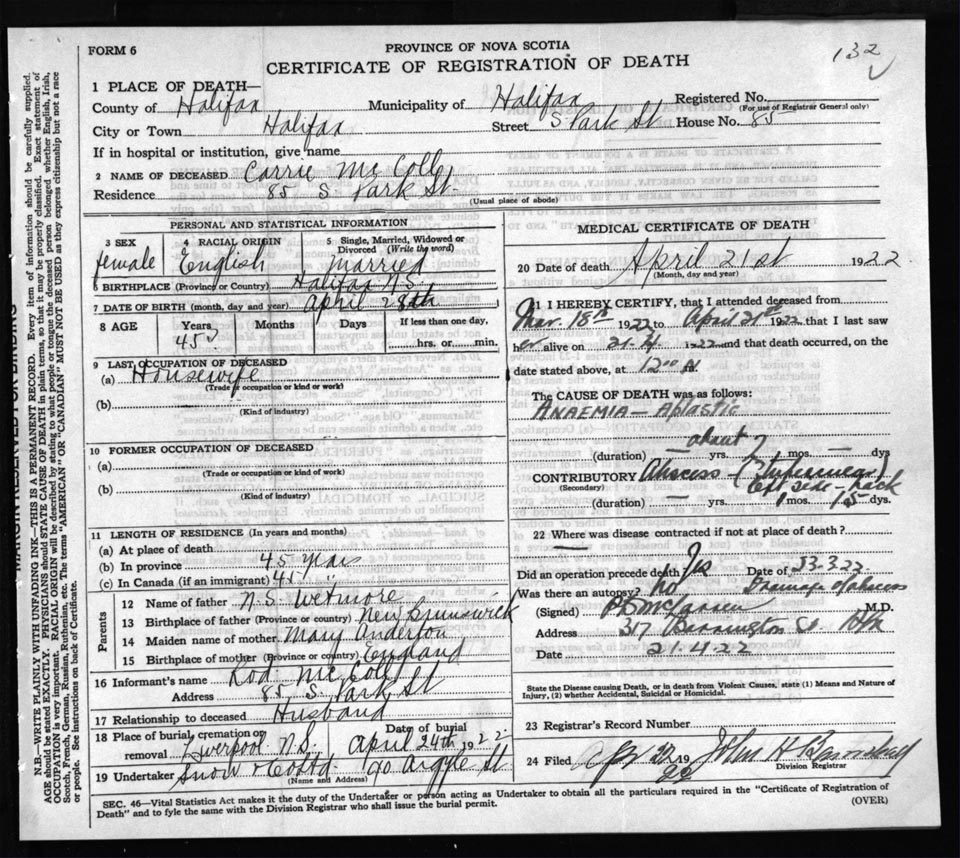 132
FORM 6
PROVINCE OF NOVA SCOTIA
CERTIFICATE OF REGISTRATION OF DEATH
1 PLACE OF DEATH—
County of Halifax Municipality of Halifax Registered No.
(For use of Registrar General only)
City or Town Halifax Street S Park St House No. 85
If in hospital or institution, give name
2 NAME OF DECEASED Carrie McColl
Residence 85 S. Park St.
(Usual place of abode)
PERSONAL AND STATISTICAL INFORMATION
3 SEX 4 RACIAL ORIGIN 5 Single, Married, Widowed or Divorced (Write the word)
female English married
6 BIRTHPLACE (Province or Country) Halifax N.S.
7 DATE OF BIRTH (month, day and year) April 28th
8 AGE Years Months Days If less than one day,
45 hrs. or min.
9 LAST OCCUPATION OF DECEASED
(a) Housewife
(Trade or occupation or kind or work)
(b)
(Kind of industry)
10 FORMER OCCUPATION OF DECEASED
(a)
(Trade or occupation or kind of work)
(b)
(Kind of industry)
11 LENGTH OF RESIDENCE (In years and months)
(a) At place of death
(b) In province 45 years
(c) In Canada (if an immigrant) 45 "
Parents
12 Name of father N.S. Wetmore
13 Birthplace of father (Province or country) New Brunswick
14 Maiden name of mother Mary Anderton
15 Birthplace of mother (Province or country) England
16 Informant's name Rod. McColl
Address 85 S. Park St
17 Relationship to deceased Husband
18 Place of burial cremation or removal Liverpool N.S. Date of burial April 24th 1922
19 Undertaker Snow & Co Ltd 90 Argyle St
(Name and Address)
MEDICAL CERTIFICATE OF DEATH
20 Date of death April 21st 1922
(Month, day and year)
21 I HEREBY CERTIFY, that I attended deceased from
Mar. 18th 1922 to April 21st 1922 that I last saw
her alive on 21.4. 1922 and that death occurred, on the
date stated above, at 12.00 N.
The CAUSE OF DEATH was as follows:
ANAEMIA — Aplastic
about 7
(duration) — yrs. — mos. — dys
CONTRIBUTORY Abscess
(Secondary) left side — neck
(duration) — yrs. 1 mos. 15 dys.
22 Where was disease contracted if not at place of death?
—
Did an operation precede death? Yes Date of 23.3.22
Was there an autopsy? No Drainage of abscess
(Signed) M.D.
Address 317 Barrington St Hfx
Date 21.4.22
State the Disease causing Death, or in death from Violent Causes, state (1) Means and Nature of Injury, (2) whether Accidental, Suicidal or Homicidal.
23 Registrar's Record Number
24 Filed 1922 John H
Division Registrar
SEC. 46—Vital Statistics Act makes it the duty of the Undertaker or person acting as Undertaker to obtain all the particulars required in the "Certificate of Registration of
Death" and to fyle the same with the Division Registrar who shall issue the burial permit. (OVER)
MARGIN RESERVED FOR BINDING
N.B.—WRITE PLAINLY WITH UNFADING INK—THIS IS A PERMANENT RECORD. Every item of information should be carefully supplied.
AGE should be stated EXACTLY. PHYSICIANS should STATE CAUSE OF DEATH in plain terms, so that it may be properly classified. Exact statement of
OCCUPATION is very important. RACIAL ORIGIN will be described by stating to what people or tongue the deceased person belonged whether English, Irish,
Scotch, French, German, Russian, Ruthenian, etc. The terms "AMERICAN" or "CANADIAN" MUST NOT BE USED as they express citizenship but not a race
or people. See instructions on back of Certificate.